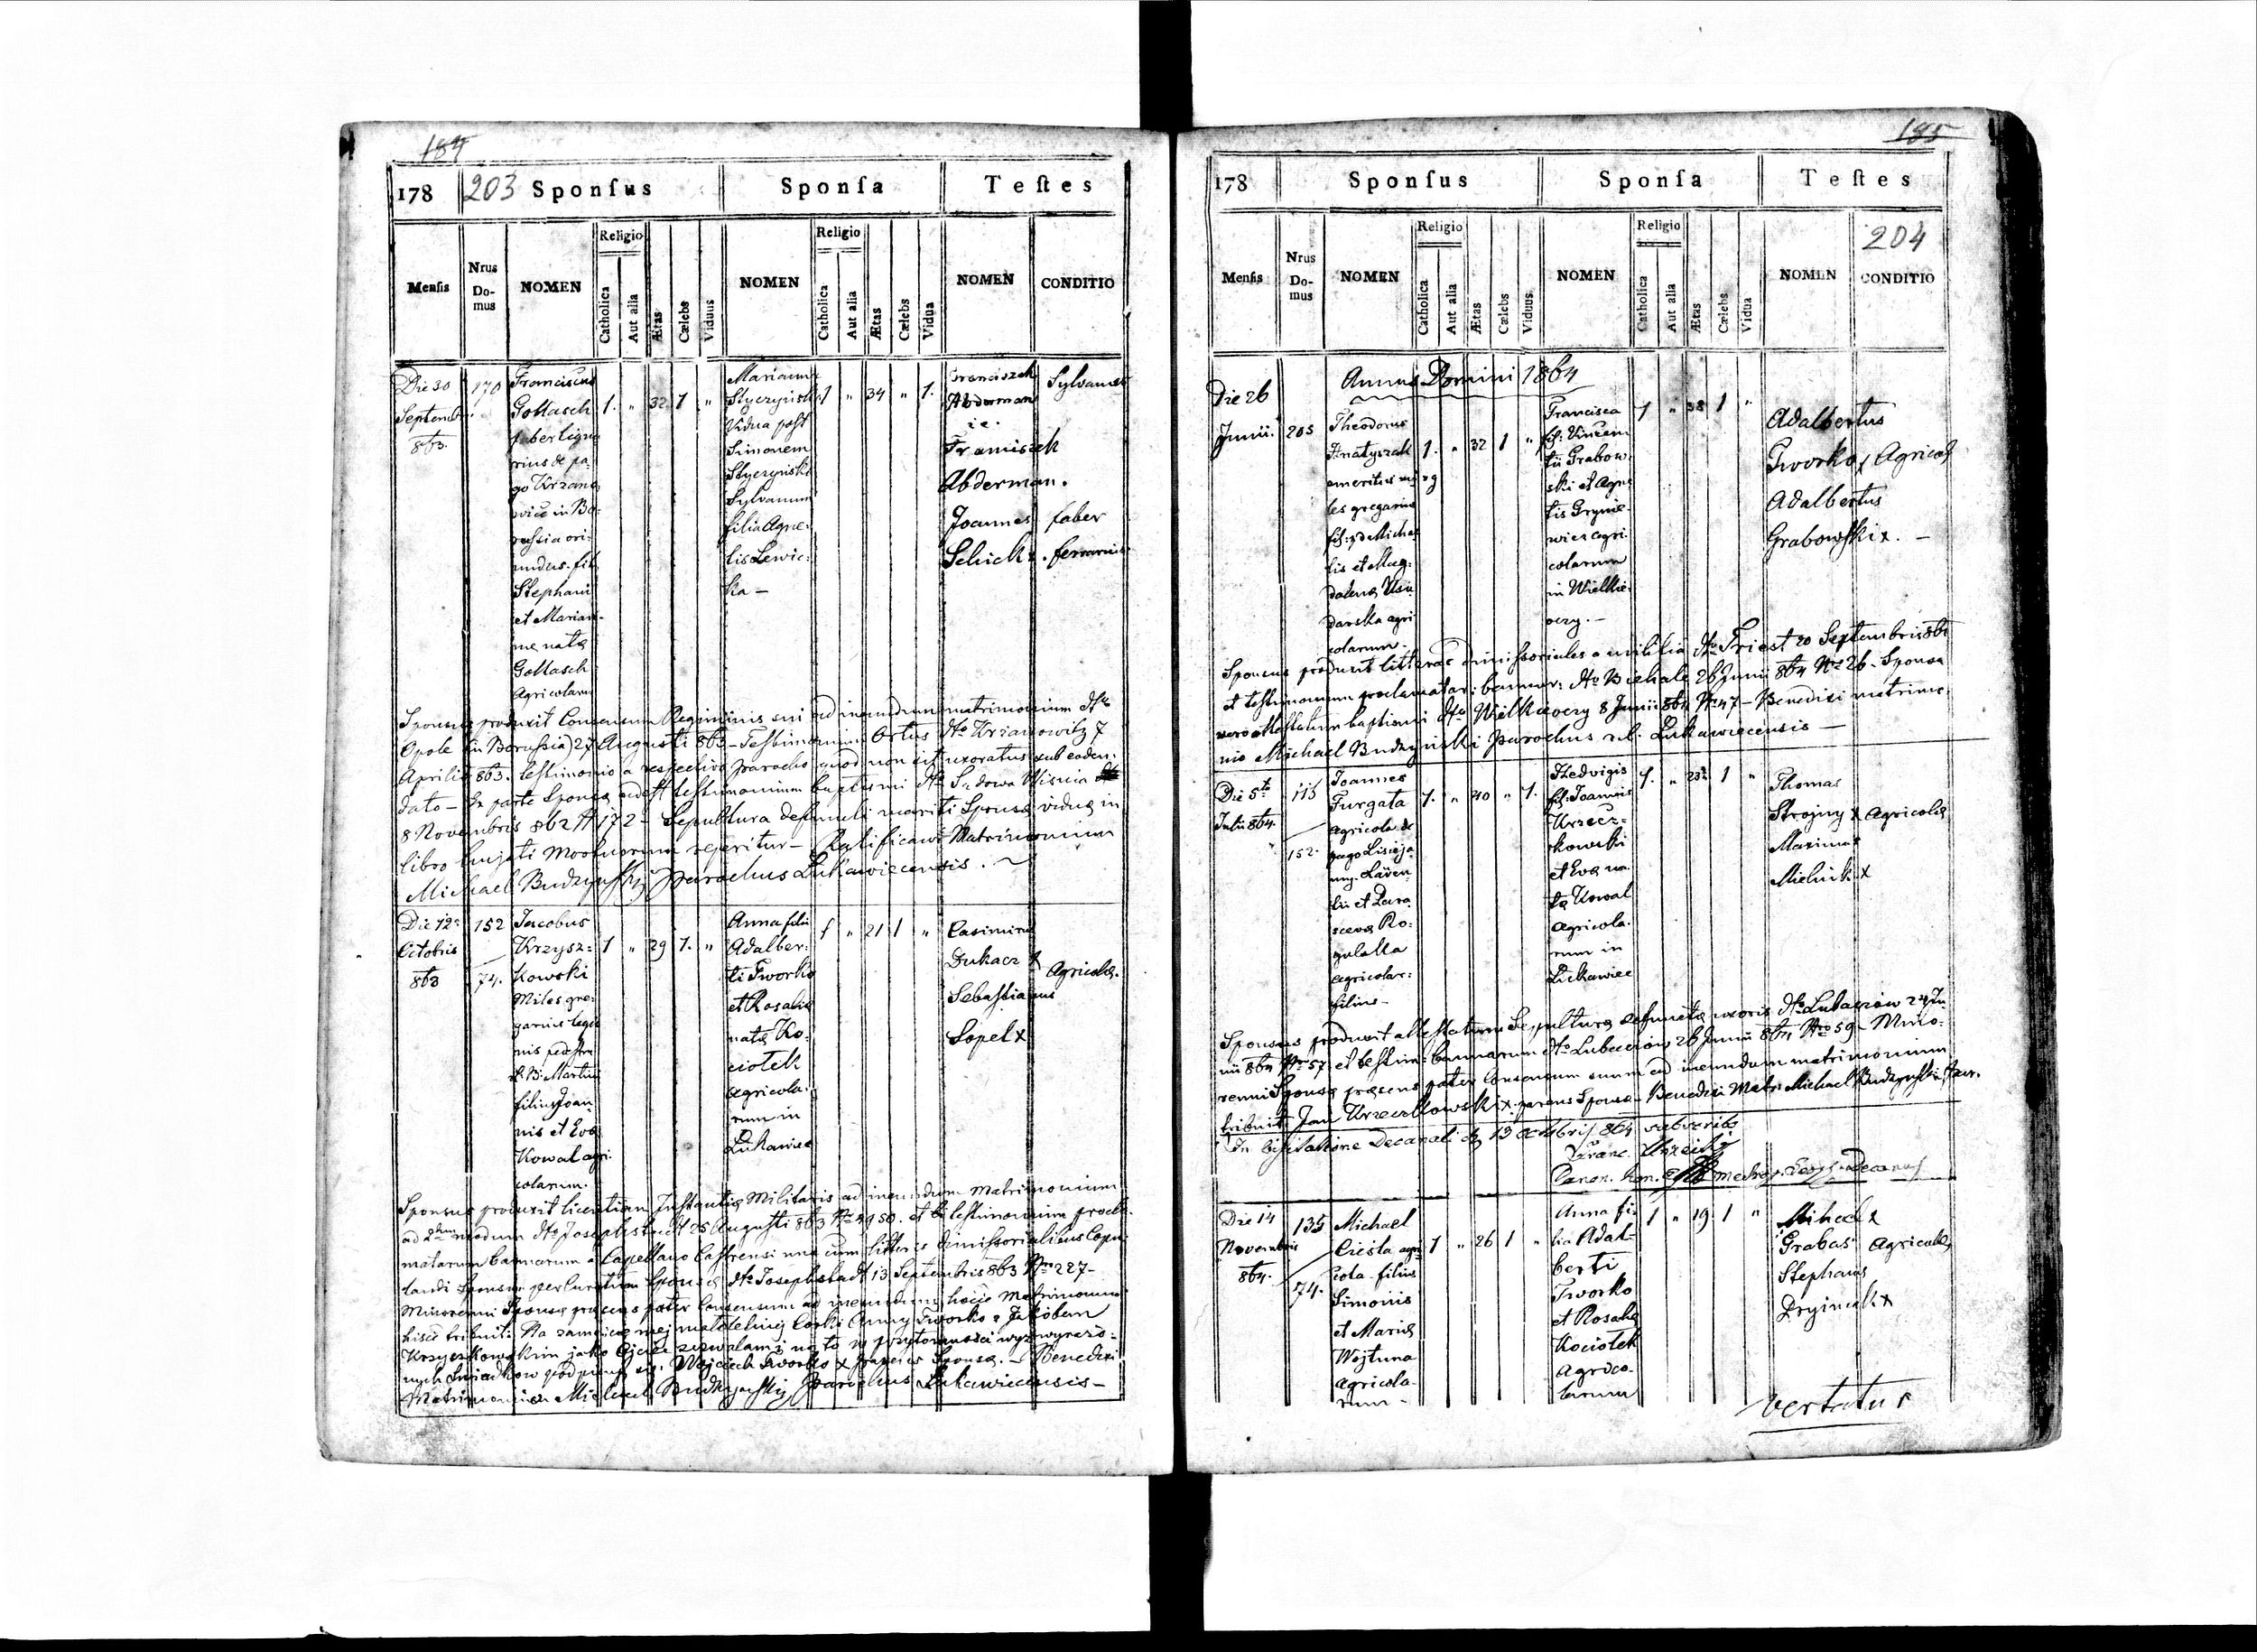 184
178
203 Sponſus
Sponſa
Teſtes
Menſis
Nrus Do-mus
NOMEN
Religio
Catholica
Aut alia
Ætas
Cælebs
Viduus
NOMEN
Religio
Catholica
Aut alia
Ætas
Cælebs
Vidua
NOMEN
CONDITIO
Die 30
Septemb.
863.
170
Franciscus
Gollasch
faber ligna
rius de pa
go Krzano
vice in Bo
russia ori
undus. fil
Stephani
et Marian
næ natæ
Gollasch
Agricolaru
1. " 32 1 "
Marianna
Styczyńska
Vidua post
Simonem
Styczyński
Sylvanum
filia Agne
tis Lewic
ka –
1 " 34 " 1.
Franciszek
Abderman
i.e.
Franciszek
Abderman.
Joannes
Schick x.
Sylvanus
faber
ferrarius
Sponsus produxit Consensum Regiminis sui ad ineundum matrimonium
Opole (in Borussia) 27 Augusti 863 – Testimonium Ortus Krzanowitz 7
Aprilis 863. testimonio a respectivo parocho quod non sit uxoratus sub eodem
dato – Ex parte Sponsæ adest testimonium baptismi Sądowa Wisznia
8 Novembris 862 172 – Sepultura defuncti mariti Sponsæ viduæ in
libro hujati Mortuorum reperitur – Ratificavi Matrimonium
Michael Budzyński parochus Lukawiecensis.
Die 12
Octobris
863
152
74.
Jacobus
Krzysz
kowski
Miles gre
garius legio
nis pedestris
Martini
filius Joan
nis et Evæ
Kowal agri
colarum.
1 " 29 1. "
Anna filia
Adalber
ti Tworko
et Rosaliæ
natæ Ko
ciołek
agricola
rum in
Łukawiec
1 " 21 1 "
Casimirus
Dukacz x
Sebastianus
Sopel x
Agricolæ.
Sponsus produxit licentiam Instantiæ Militaris ad ineundum Matrimonium
ad 2dum modum Josephstadt 25 Augusti 863 4950. et testimonium procla
matarum bannorum a Capellano Castrensi una cum litteris dimissorialibus Copu
landi Sponsum per Curatum Sponsæ Josephstadt 13 Septembris 863 227 –
Minorenni Sponsæ præsens pater Consensum ad ineundum hocce Matrimonium
hisce tribuit: Na zamęście mej małoletniej Corki Anny Tworko z Jakóbem
Krzyszkowskim jako Ojciec zezwalam i na to w przytomności wyż wyrażo
nych Świadków podpisuję się. Wojciech Tworko x parens Sponsæ. – Benedixi
Matrimonium Michael Budzyński Parochus Lukawiecensis –
185
178
Sponſus
Sponſa
Teſtes
204
Menſis
Nrus Do-mus
NOMEN
Religio
Catholica
Aut alia
Ætas
Cælebs
Viduus
NOMEN
Religio
Catholica
Aut alia
Ætas
Cælebs
Vidua
NOMEN
CONDITIO
Annus Domini 1864
Die 26
Junii.
205
Theodorus
Hnatyszak
emeritus mi
les gregarius
Michae
lis et Mag
dalenæ
darska agri
colarum.
1. " 32 1 "
Francisca
fil: Vincen
tii Grabow
ski et Agne
tis Grynie
wicz agri
colarum
in Wielkie
oczy. –
1 " 38 1 "
Adalbertus
Tworko x
Adalbertus
Grabowski x. –
Agricolæ
Sponsus produxit litteras dimissoriales a militia Triest 20 Septembris 861
et testimonium proclamatar: bannor: 26 Junii 864 26 – Sponsa
vero Attestatum baptismi Wielkieoczy 8 Junii 864 47 – Benedixi matrimo
nio Michael Budzyński parochus r.l. Łukawiecensis –
Die 5ta
Julii 864.
115
152.
Joannes
Furgała
agricola de
pago Lisieja
my. Lauren
tii et Para
scevæ Ro
gulałła
agricolar:
filius –
1. " 40 " 1.
Hedvigis
fil: Joannis
Krzecz
kowski
et Evæ na
tæ Kowal
agricola
rum in
Łukawiec
1. " 23½ 1 "
Thomas
Strojny x
Maximus
Mielnik x
Agricolæ
Sponsus produxit attestatum Sepulturæ defunctæ uxoris Lubaczów 24 Ju
nii 864 57. et testim: bannorum Lubaczow 26 Junii 864 59 – Mino
renni Sponsæ præsens pater Consensum suum ad ineundum matrimonium
tribuit Jan Krzeczkowski x. parens Sponsæ – Benedixi Matr: Michael Budzyński Par.
In visitatione Decanali d. 13 Octobris 864 subscribo
Franc.
Canon. hon. Decanus
Die 14
Novembris
864.
135
74.
Michael
Cieśla agri
cola. filius
Simonis
et Mariæ
Wojtuna
agricola
rum –
1 " 26 1 "
Anna fi
lia Adal
berti
Tworko
et Rosaliæ
Kociołek
agrico
larum
1 " 19 1 "
Mihael x
Grabas
Stephanus
Dryiniak x
Agricolæ
Vertatur